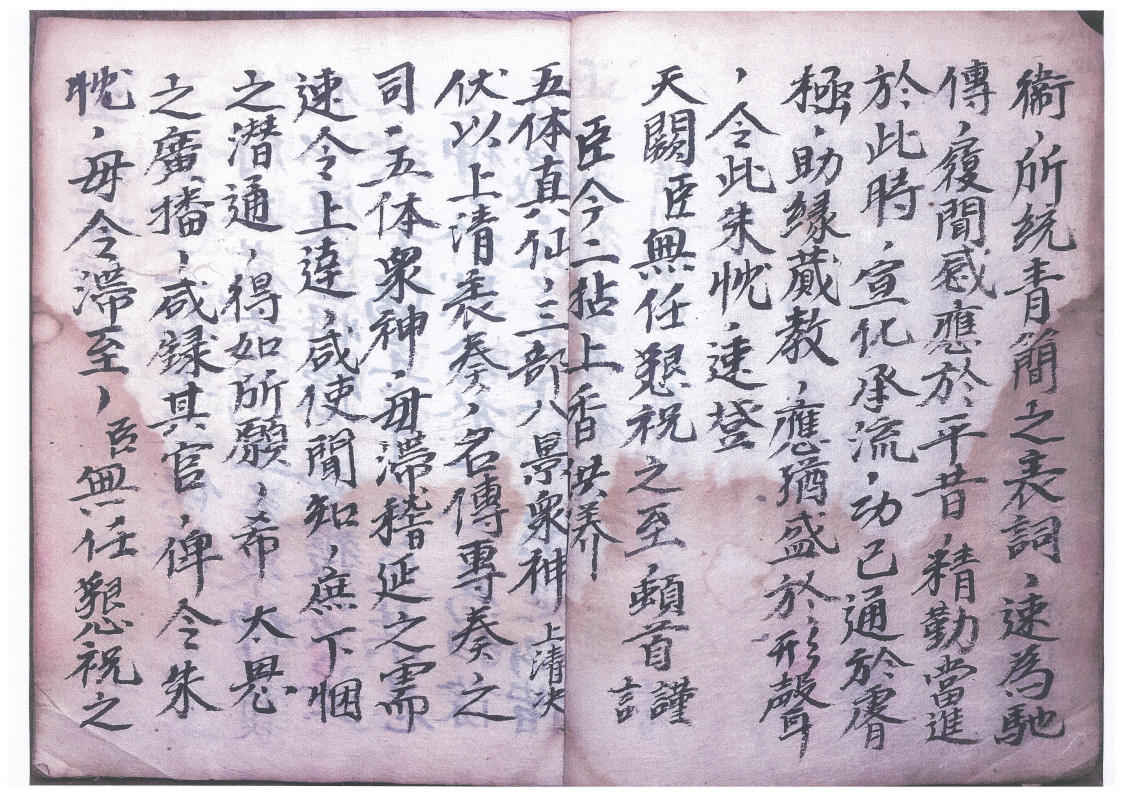 衞，所統青簡之表詞，速為馳
傳，履聞感應於平昔，精勤當進
於此時，宣化承流，功已通於霄
極，助緣藏教，應猶盛於形聲
，令此朱忱，速登
天闕臣無任懇祝之至，頓首謹言
臣今二拈上香供养
五体真仙，三部八景衆神上清决
伏以上清表奏，名傳專奏之
司，五体衆神，毋滯稽延之需
速令上達，咸使聞知，庶下悃
之潛通，得如所願，希 太恩
之廣播，咸録其官，俾令朱
忱，毋令滯至，臣無任懇祝之